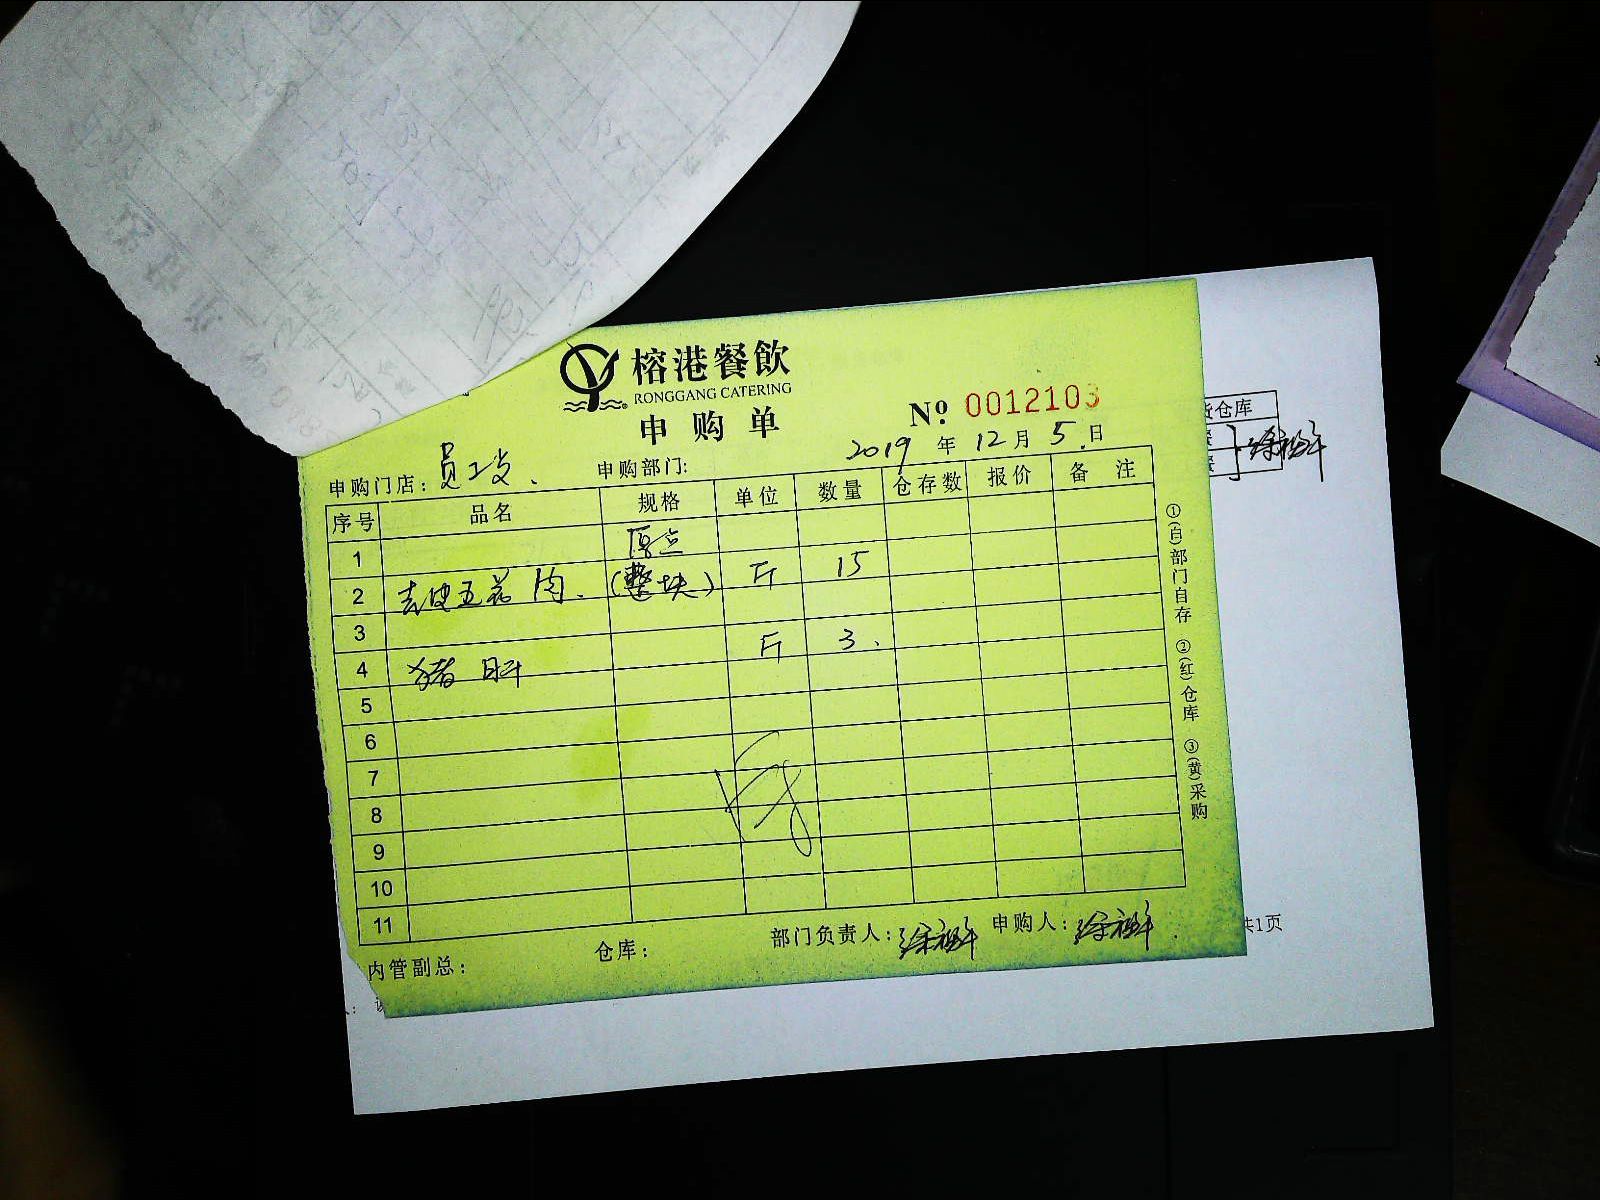 榕港餐飲
RONGGANG CATERING
申购单
№ 0012103
2019 年 12 月 5 日
申购门店：员工 申购部门：
序号 品名 规格 单位 数量 仓存数 报价 备 注
1 厚点
2 去皮五花肉. (整块) 斤 15
3
4 猪肝 斤 3.
5
6
7
8
9
10
11
内管副总： 仓库： 部门负责人： 申购人：
①(白)部门自存 ②(红)仓库 ③(黄)采购
仓库
共1页